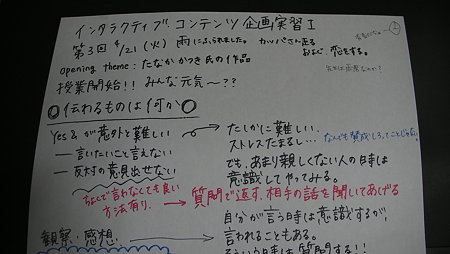 インタラクティブ・コンテンツ企画実習 I
第3回 4/21(火) 雨にふられました。カッパさん走る
およぐ、恋をする。
opening theme : たなかかつき氏の作品
授業開始!! みんな元気〜??
◎伝わるものは何か◎
Yes&が意外と難しい → たしかに難しい。
ストレスたまるし… なんでも賛成しろってことじゃない
― 言いたいこと言えない
― 反対の意見出せない
でも、あまり親しくない人の時は
意識してやってみる。
なんで言わなくても良い
方法有り。→ 質問で返す、相手の話を聞いてあげる
自分が言う時は意識するが、
観察・感想。→ 言われることもある。
そういう時は質問する!!